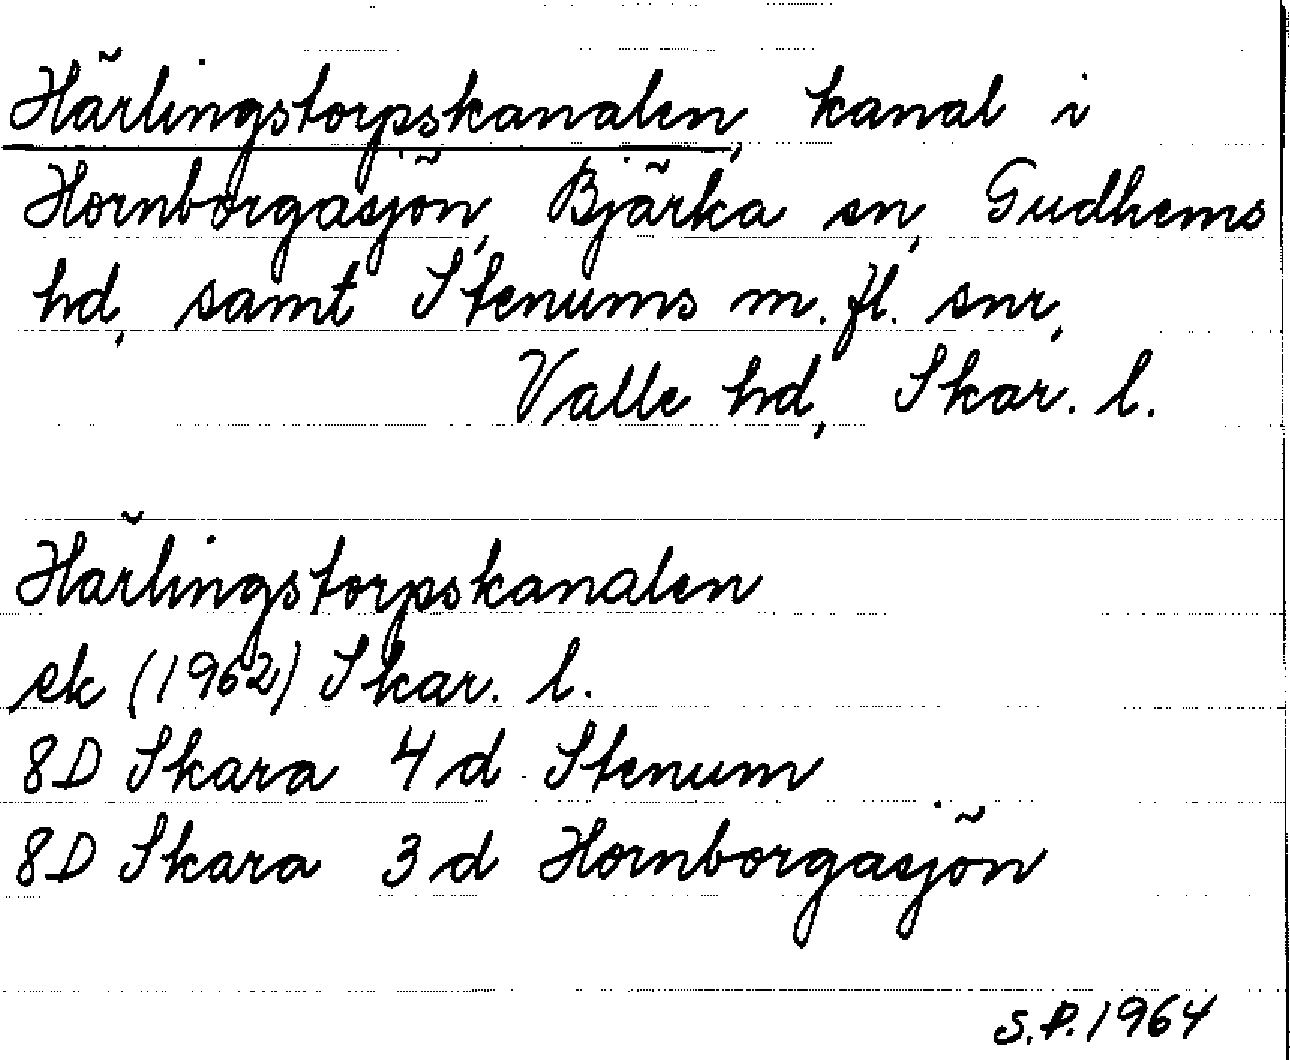 Härlingstorpskanalen, kanal i
Hornborgasjön, Bjärka sn, Gudhems
hd, samt Stenums m. fl. snr,
Valle hd, Skar. l.
Härlingstorpskanalen
ek (1962) Skar. l.
8D Skara 4d Stenum
8D Skara 3d Hornborgasjön
S.P. 1964